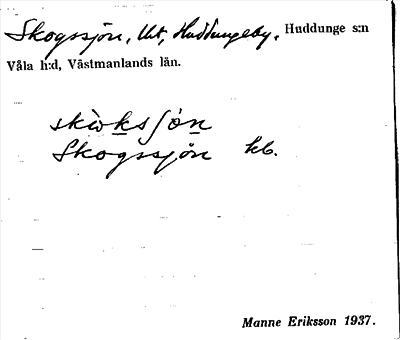 Skogssjön, lht, Huddungeby, Huddunge s:n
Våla h:d, Västmanlands län.
skὼksʃön
Skogssjön kb.
Manne Eriksson 1937.